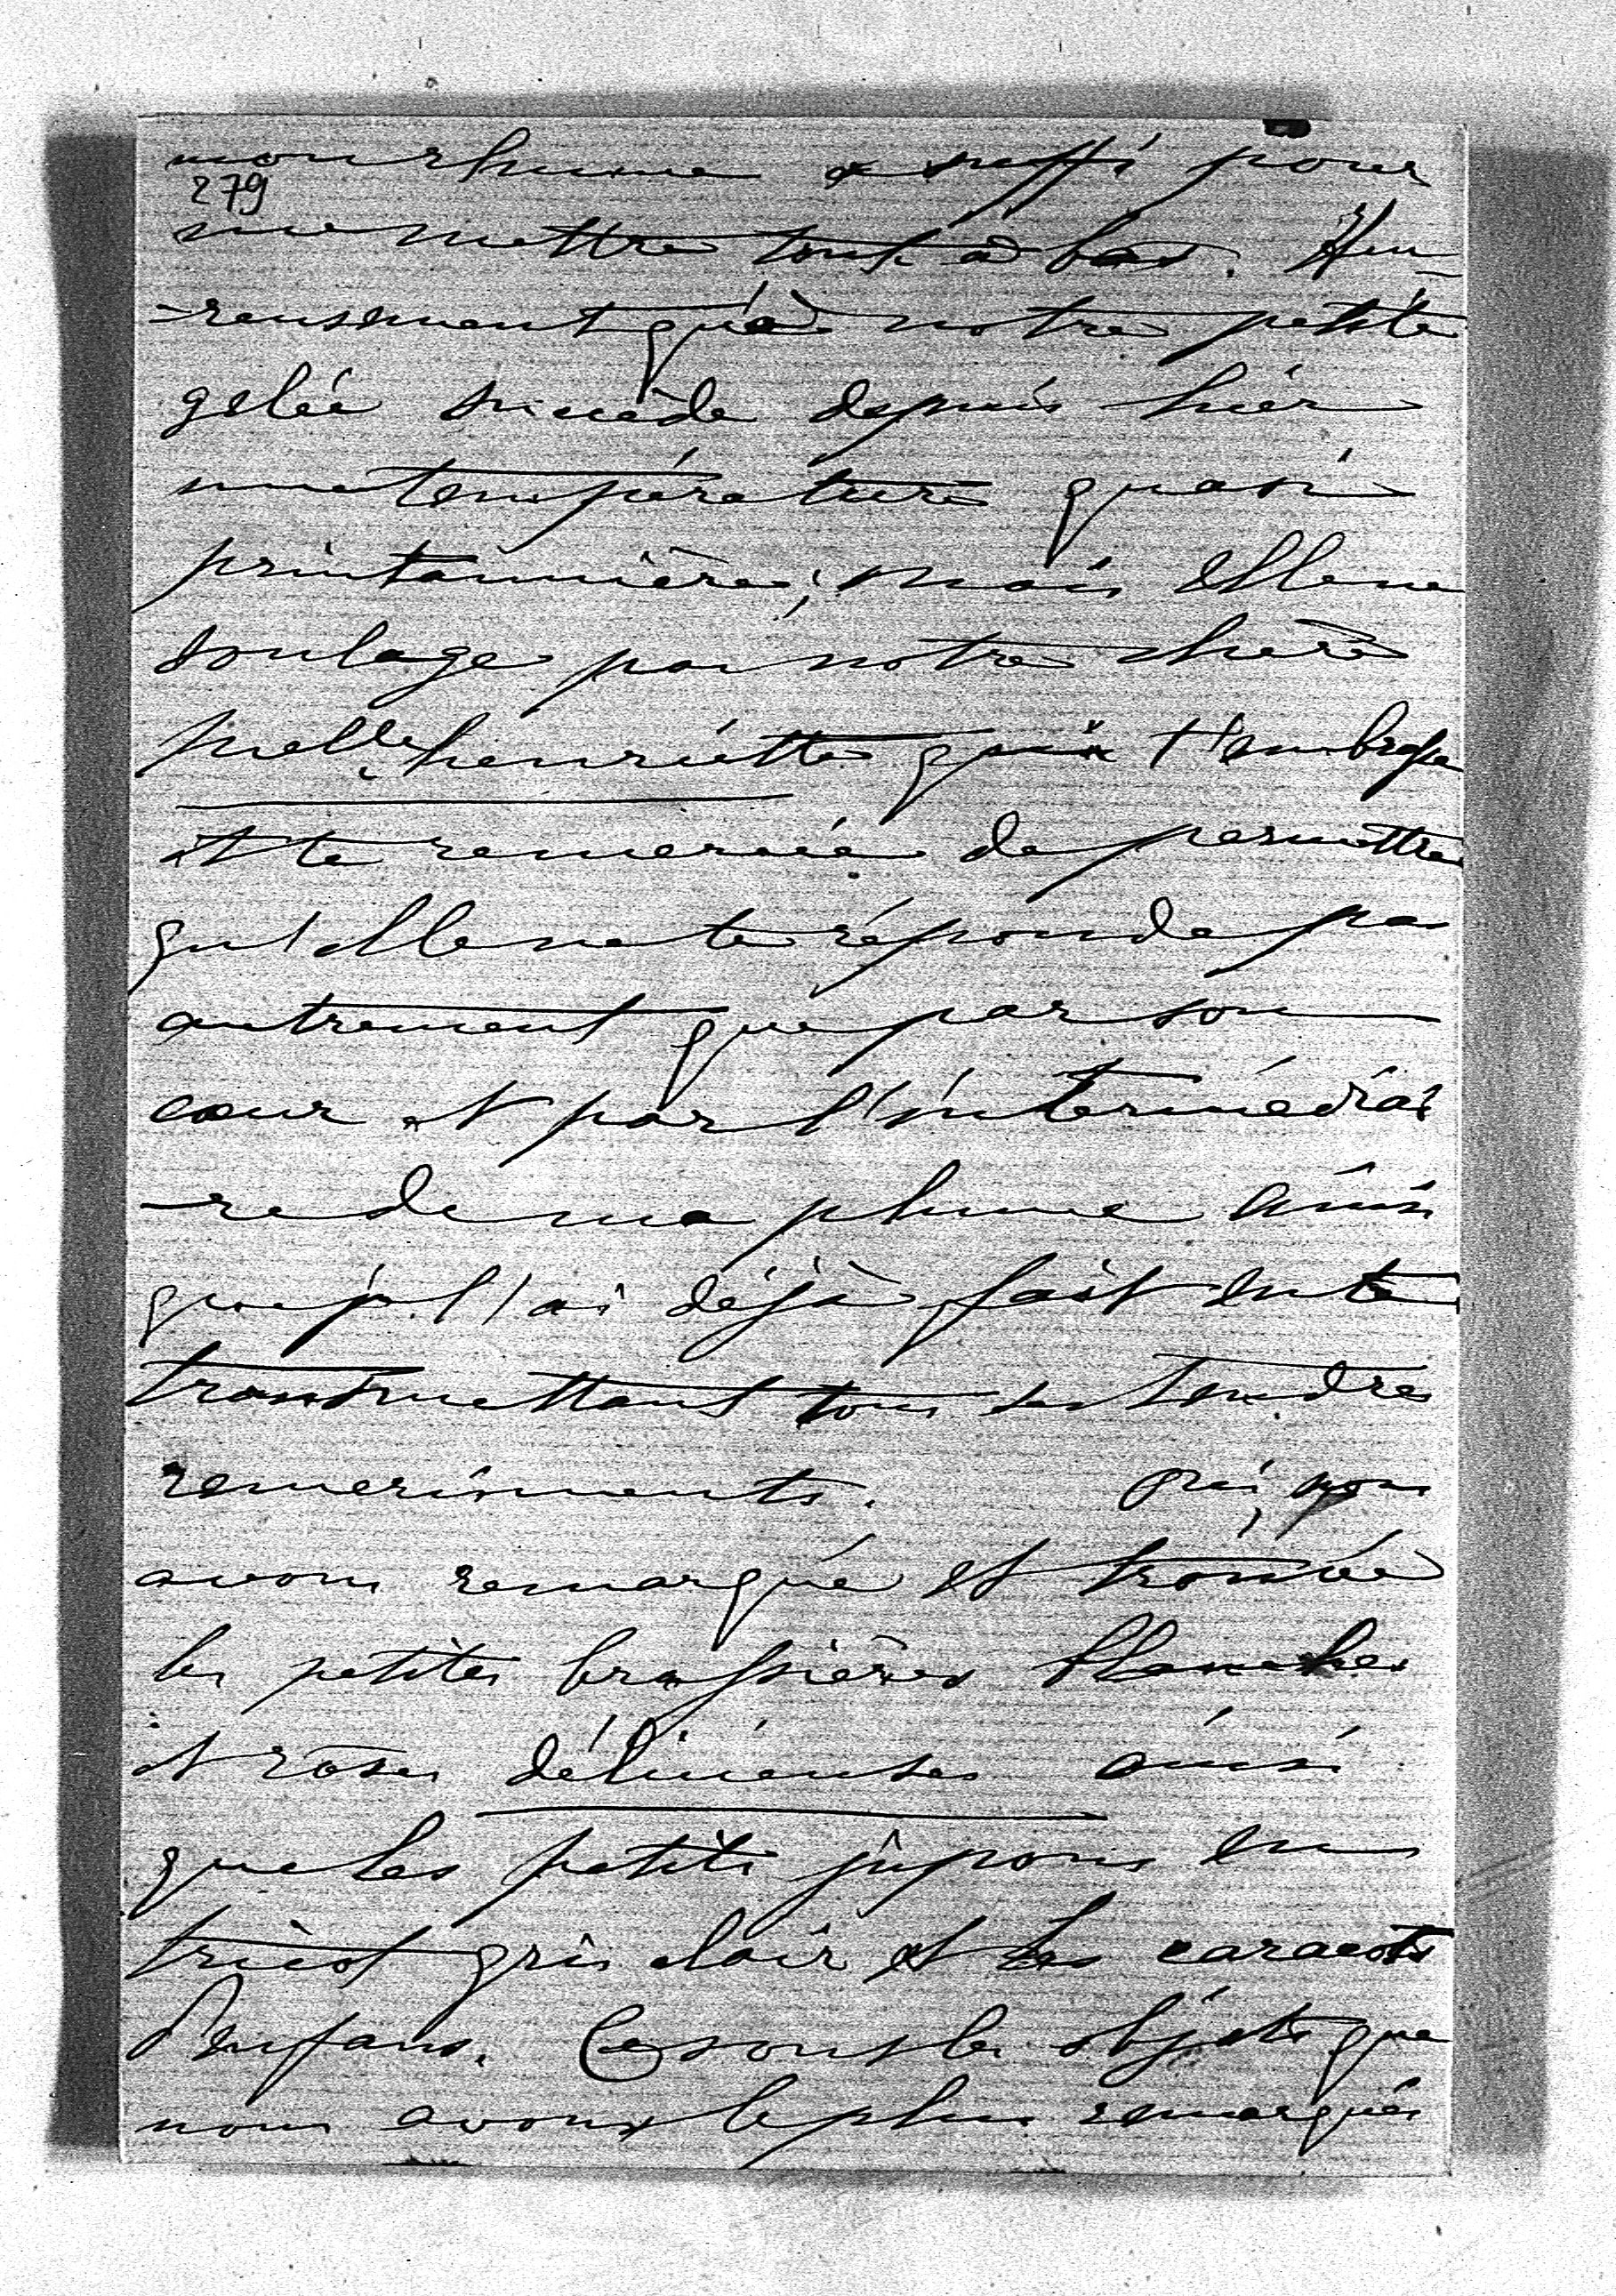 mon rhume a suffi pour
279
me mettre tout à bas. Heu-
-reusement qu'à notre petite
gelée succède depuis hier
une température quasi
printannière; mais elle ne
soulage pas notre chère
Melle henriette qui t'embrasse
et te remercie de permettre
qu'elle ne te réponde pas
autrement que par son
cœur et par l'intermédiai
-re de ma plume ainsi
que je l'ai déjà fait en te
transmettant tous ses tendres
remerciments. Oui, nous
avons remarqué et trouvé
les petites brassières blanches
et roses délicieuses ainsi
que les petits jupons en
tricot gris clair et les caracots
d'enfans. Ce sont les objets que
nous avons le plus remarqués